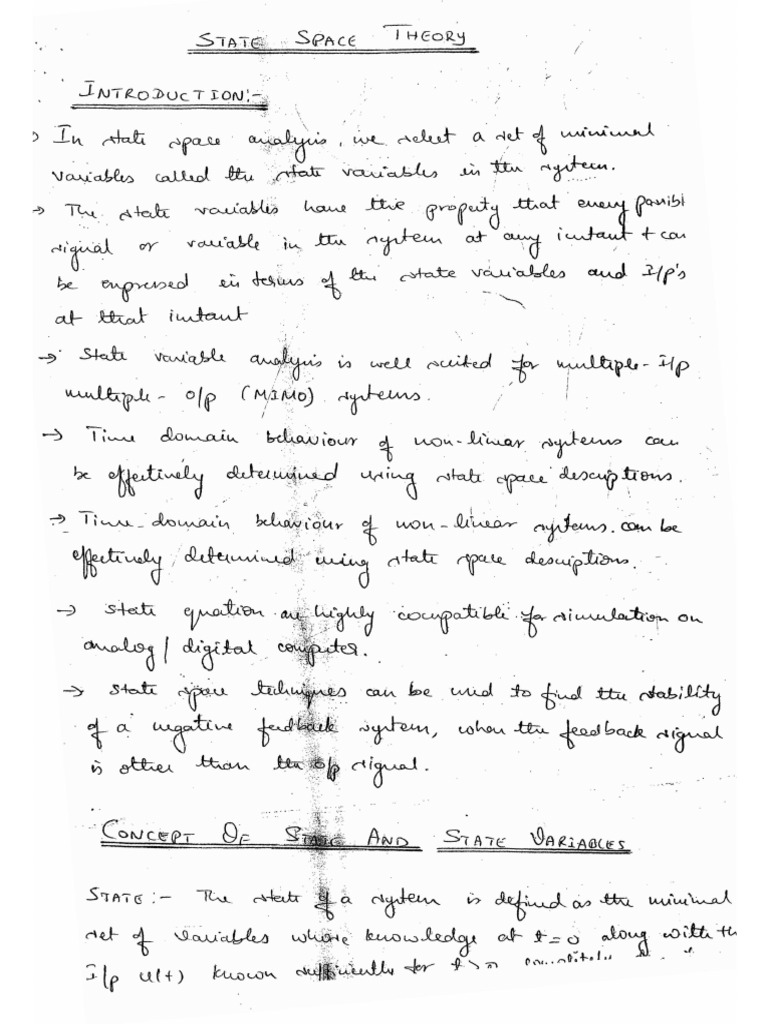 STATE SPACE THEORY
INTRODUCTION:-
→ In state space analysis, we select a set of minimal
variables called the state variables in the system.
→ The state variables have the property that every possibl
signal or variable in the system at any instant t can
be expressed in terms of the state variables and I/p's
at that instant
→ State variable analysis is well suited for multiple-I/p
multiple-O/p (MIMO) systems.
→ Time domain behaviour of non-linear systems can
be effectively determined using state space descriptions.
→ Time-domain behaviour of non-linear systems. can be
effectively determined using state space descriptions.
→ State equation are highly compatible for simulation on
analog/digital computer.
→ State space techniques can be used to find the stability
of a negative feedback system, when the feedback signal
is other than the o/p signal.
CONCEPT OF STATE AND STATE VARIABLES
STATE:- The state of a system is defined as the minimal
set of variables whose knowledge at t=0 along with th
I/p u(t) known sufficiently for